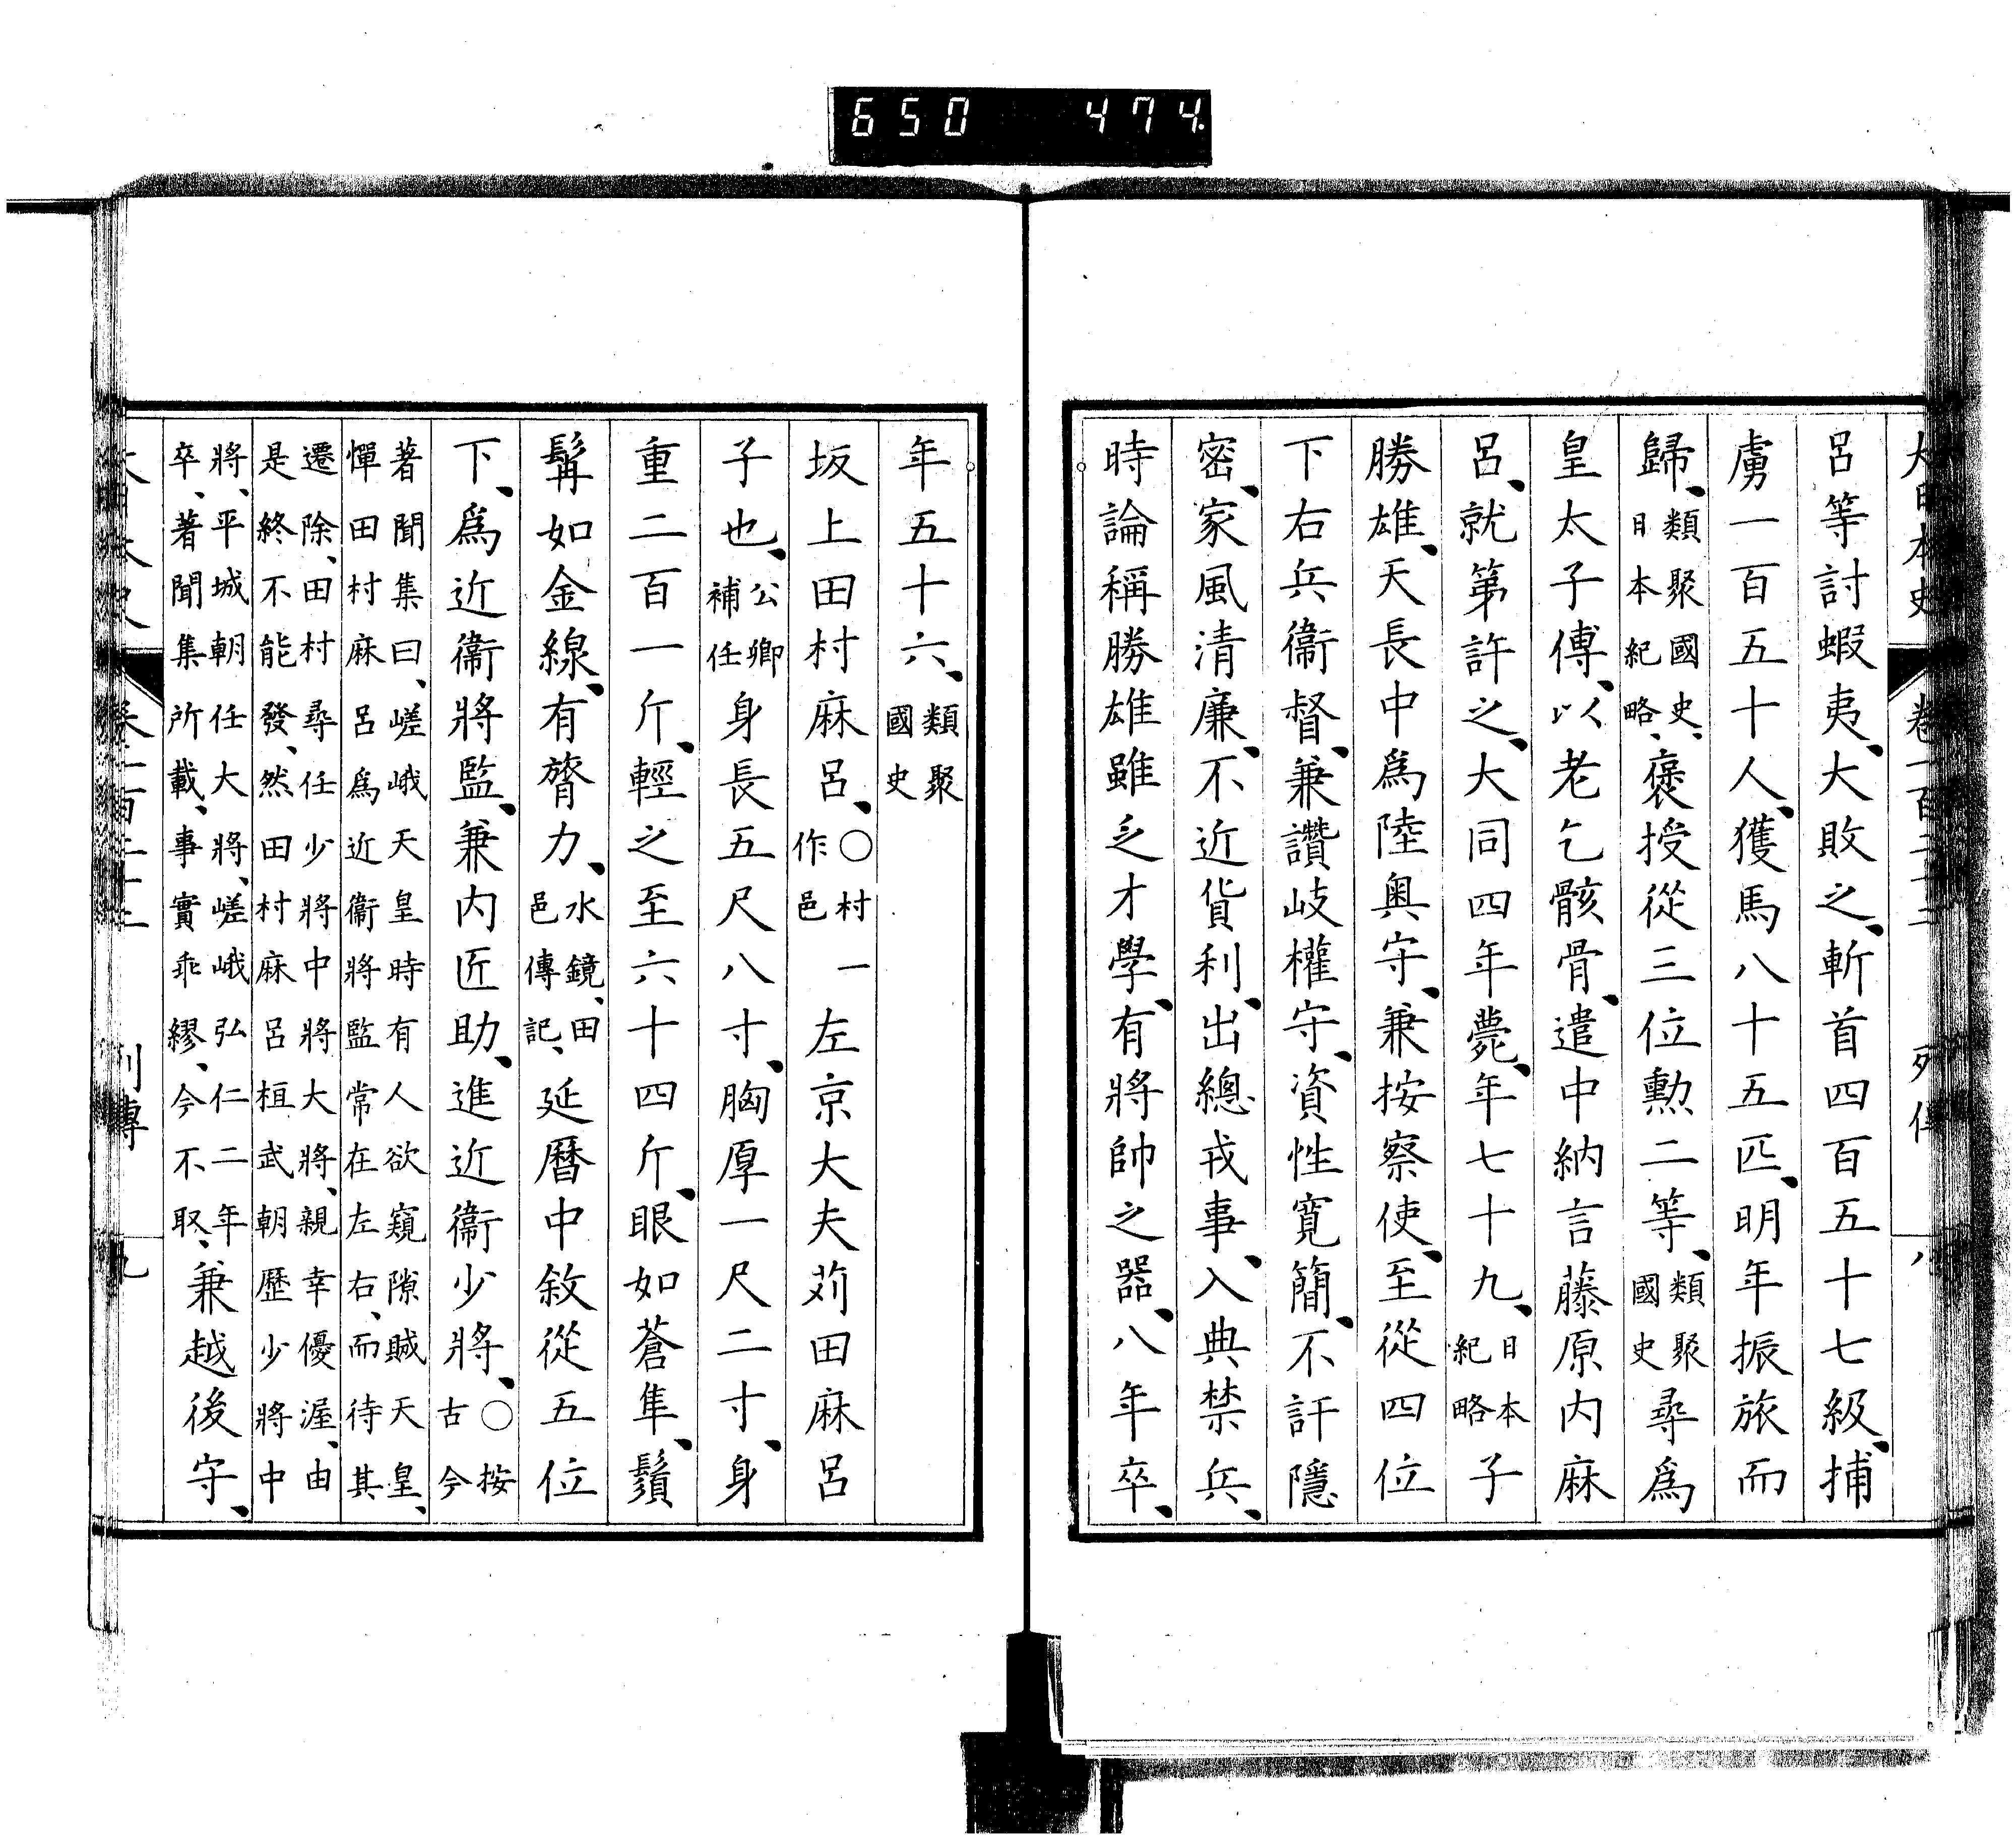 650 474
呂等討蝦夷、大敗之、斬首四百五十七級、捕
虜一百五十人、獲馬八十五匹、明年振旅而
歸、類聚國史、日本紀略、褒授從三位勳二等、類聚國史尋爲
皇太子傅、以老乞骸骨、遣中納言藤原内麻
呂、就第許之、大同四年薨、年七十九、日本紀略子
勝雄、天長中爲陸奥守、兼按察使、至從四位
下右兵衞督、兼讚岐權守、資性寬簡、不訐隱
密、家風清廉、不近貨利、出總戎事、入典禁兵、
時論稱勝雄雖乏才學、有將帥之器、八年卒、
年五十六、類聚國史
坂上田村麻呂、○村一作邑左京大夫苅田麻呂
子也、公卿補任身長五尺八寸、胸厚一尺二寸、身
重二百一斤、輕之至六十四斤、眼如蒼隼、鬚
髯如金線、有膂力、水鏡、田邑傳記、延曆中敘從五位
下、爲近衞將監、兼内匠助、進近衞少將、○按古今
著聞集曰、嵯峨天皇時有人欲窺隙賊天皇、
憚田村麻呂爲近衞將監常在左右、而待其
遷除、田村尋任少將中將大將、親幸優渥、由
是終不能發、然田村麻呂桓武朝歷少將中
將、平城朝任大將、嵯峨弘仁二年
卒、著聞集所載、事實乖繆、今不取、兼越後守、
列傳